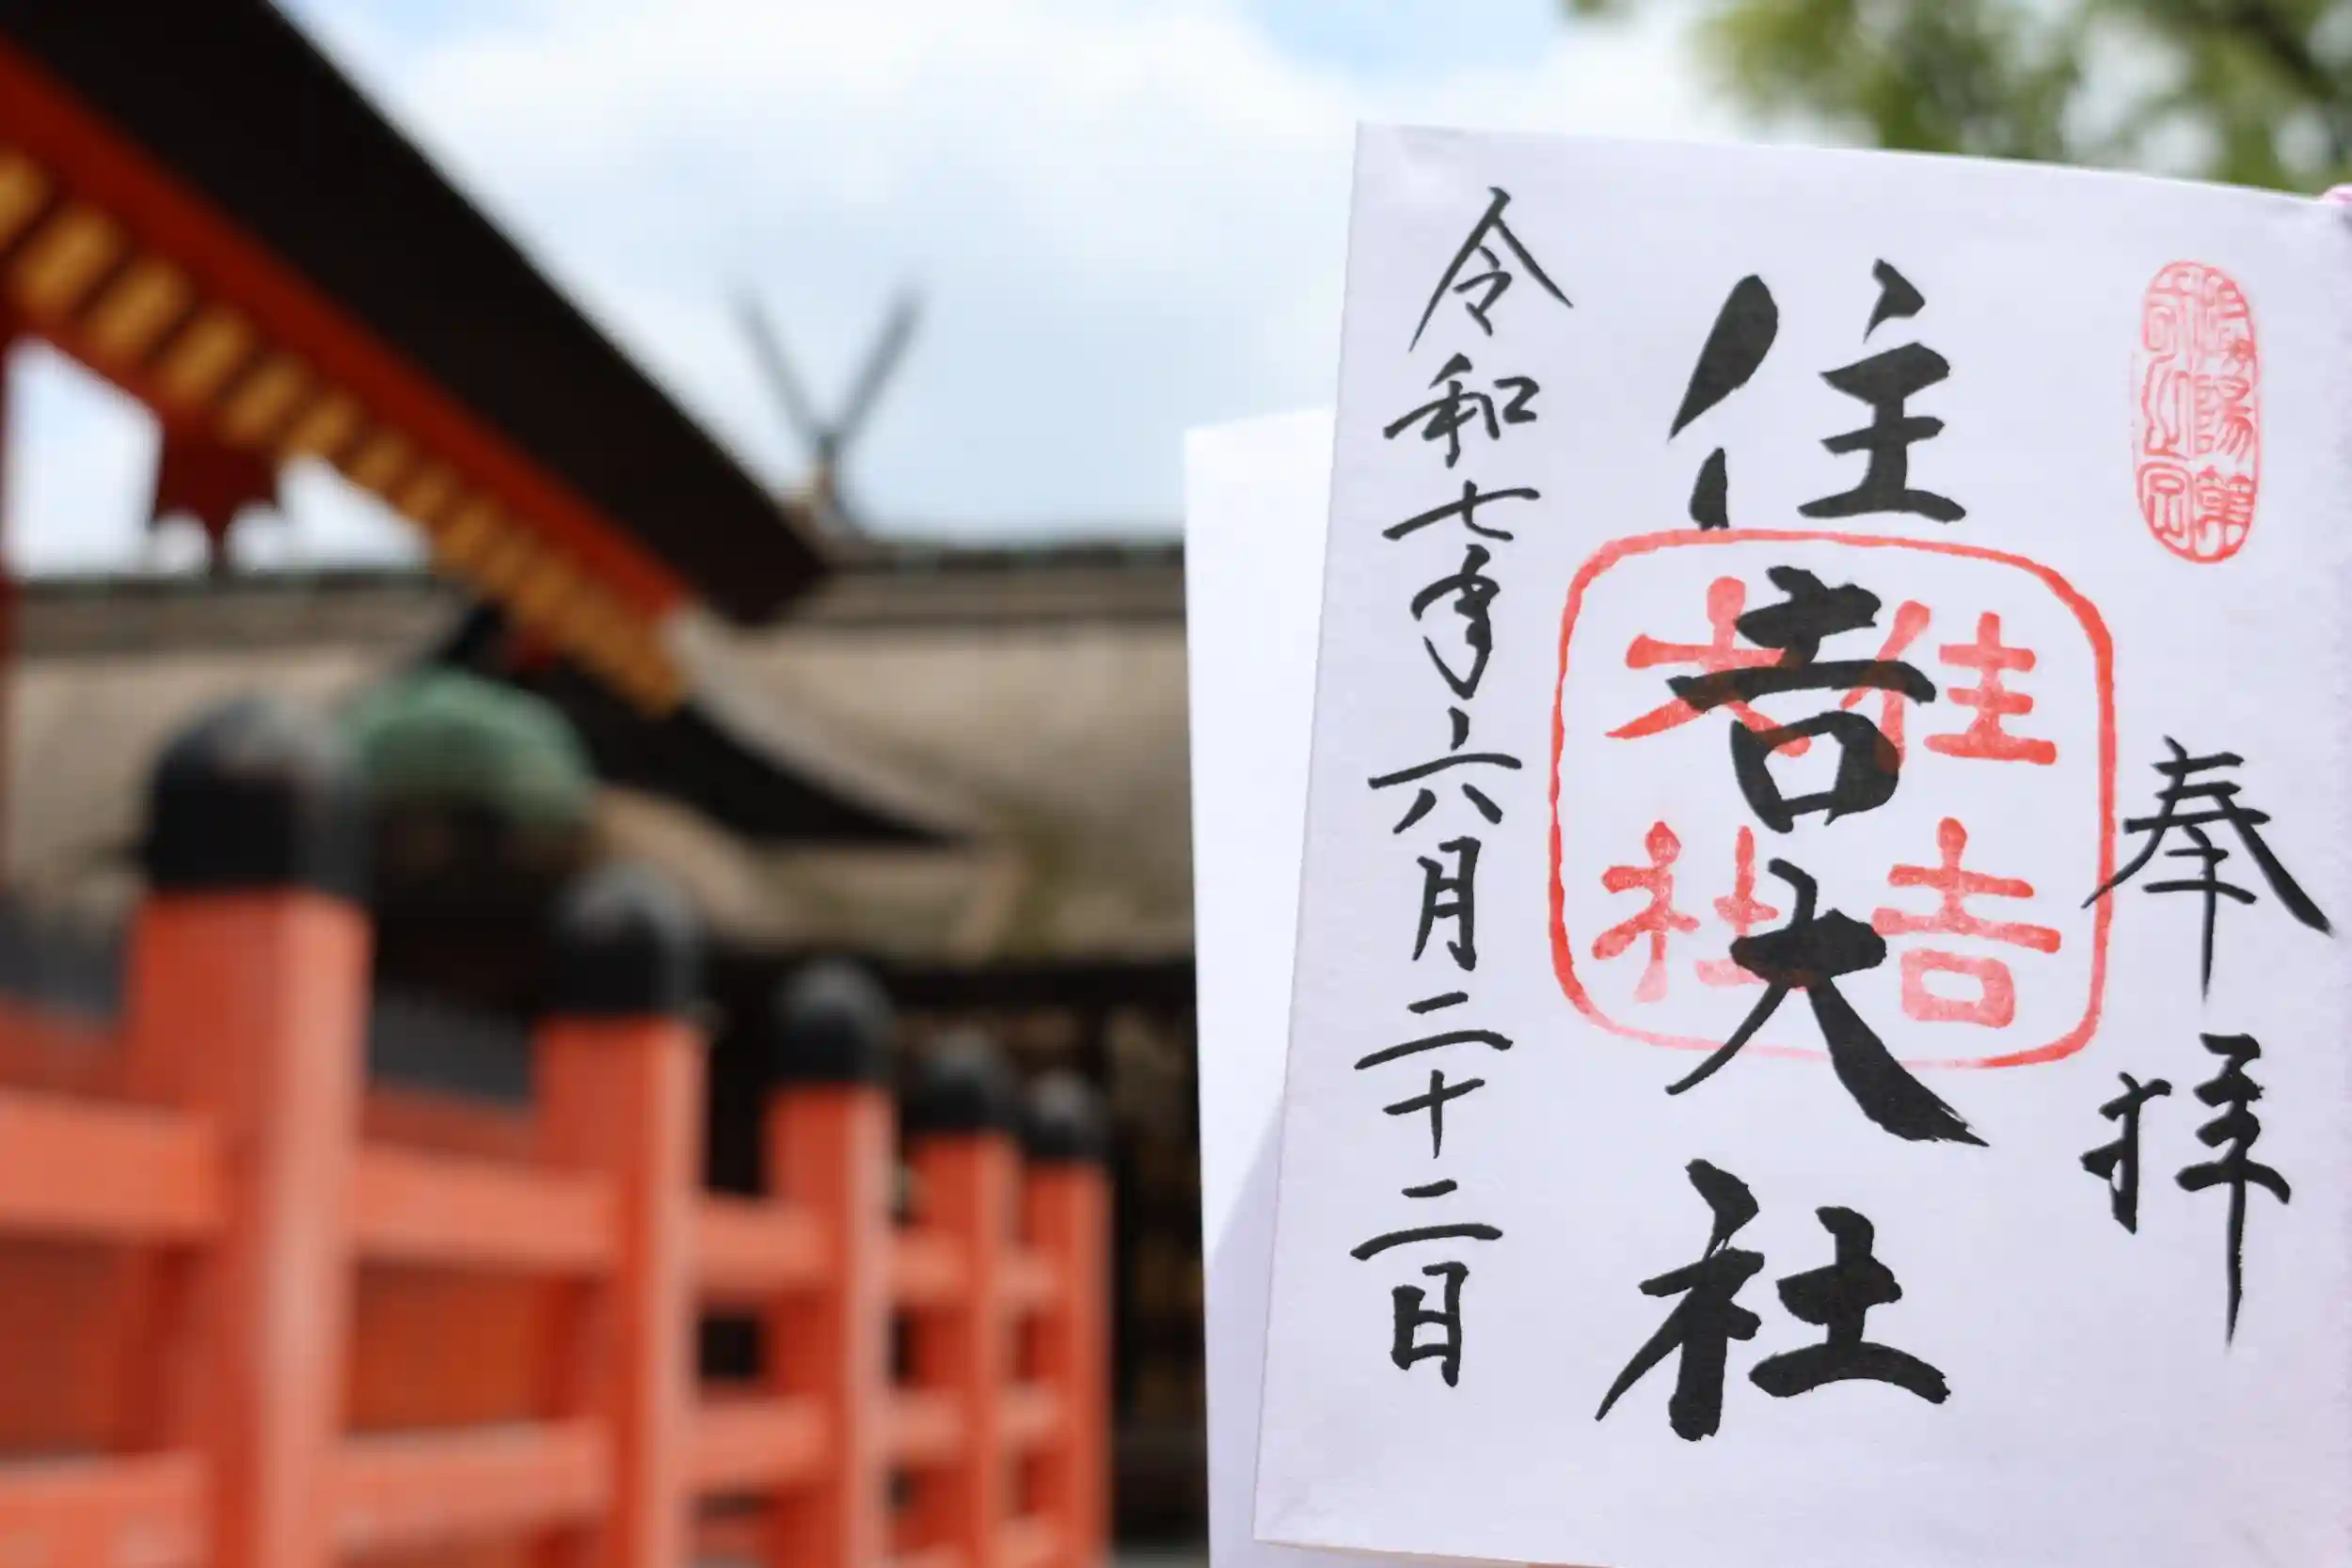 奉拝
住吉大社
住吉
大社
令和七年六月二十二日